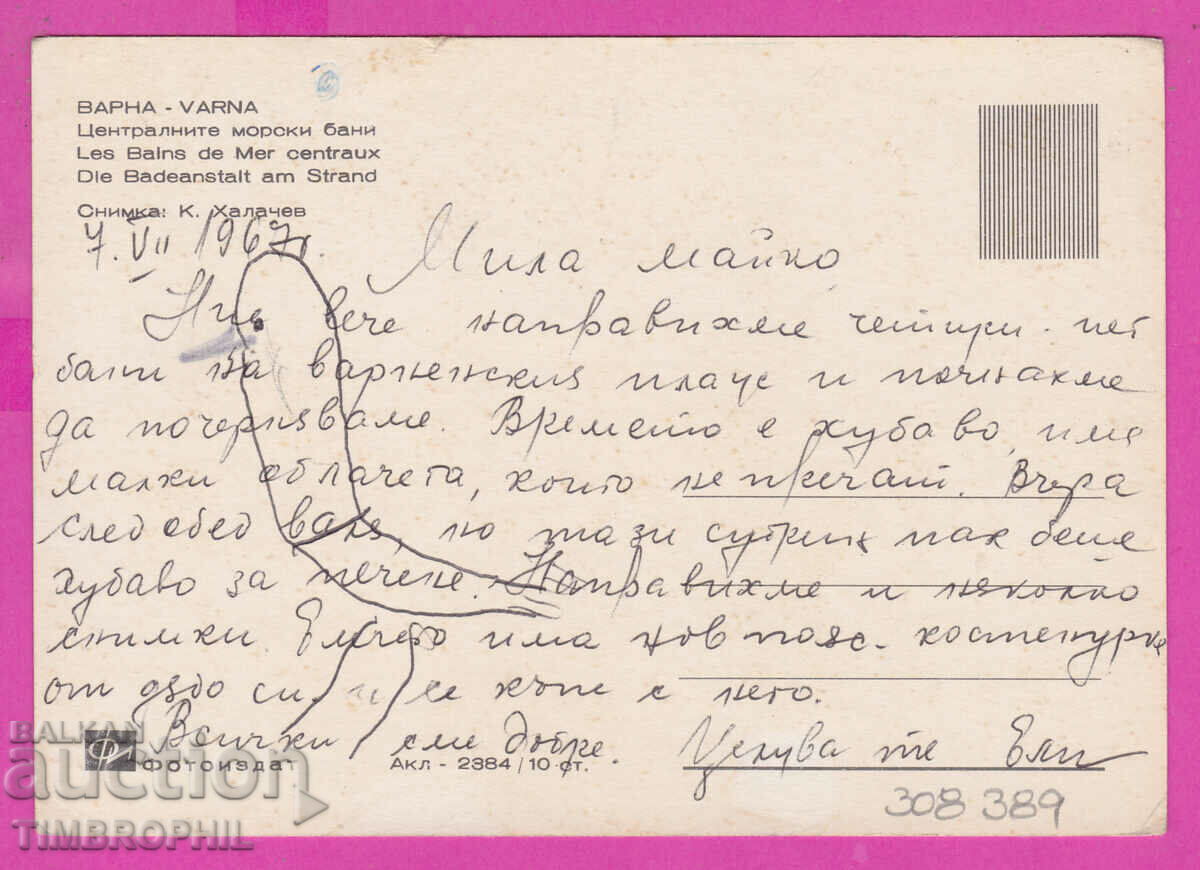 ВАРНА - VARNA
Централните морски бани
Les Bains de Mer centraux
Die Badeanstalt am Strand
Снимка: К. Халачев
7. VII 1967 г.
Мила майко
Ние вече направихме четири - пет
бани на варненския плаж и почнахме
да почерняваме. Времето е хубаво, има
малки облачета, които не пречат. Вчера
след обед валя, но тази сутрин пак беше
хубаво за печене. Направихме и няколко
снимки. Еличето има нов пояс - костенурка
от дядо си и се къпе с него.
Всички сме добре. Целува те Ели
Фотоиздат
Акл - 2384/10 ст.
308 389
BALKAN
auction
TIMBROPHIL